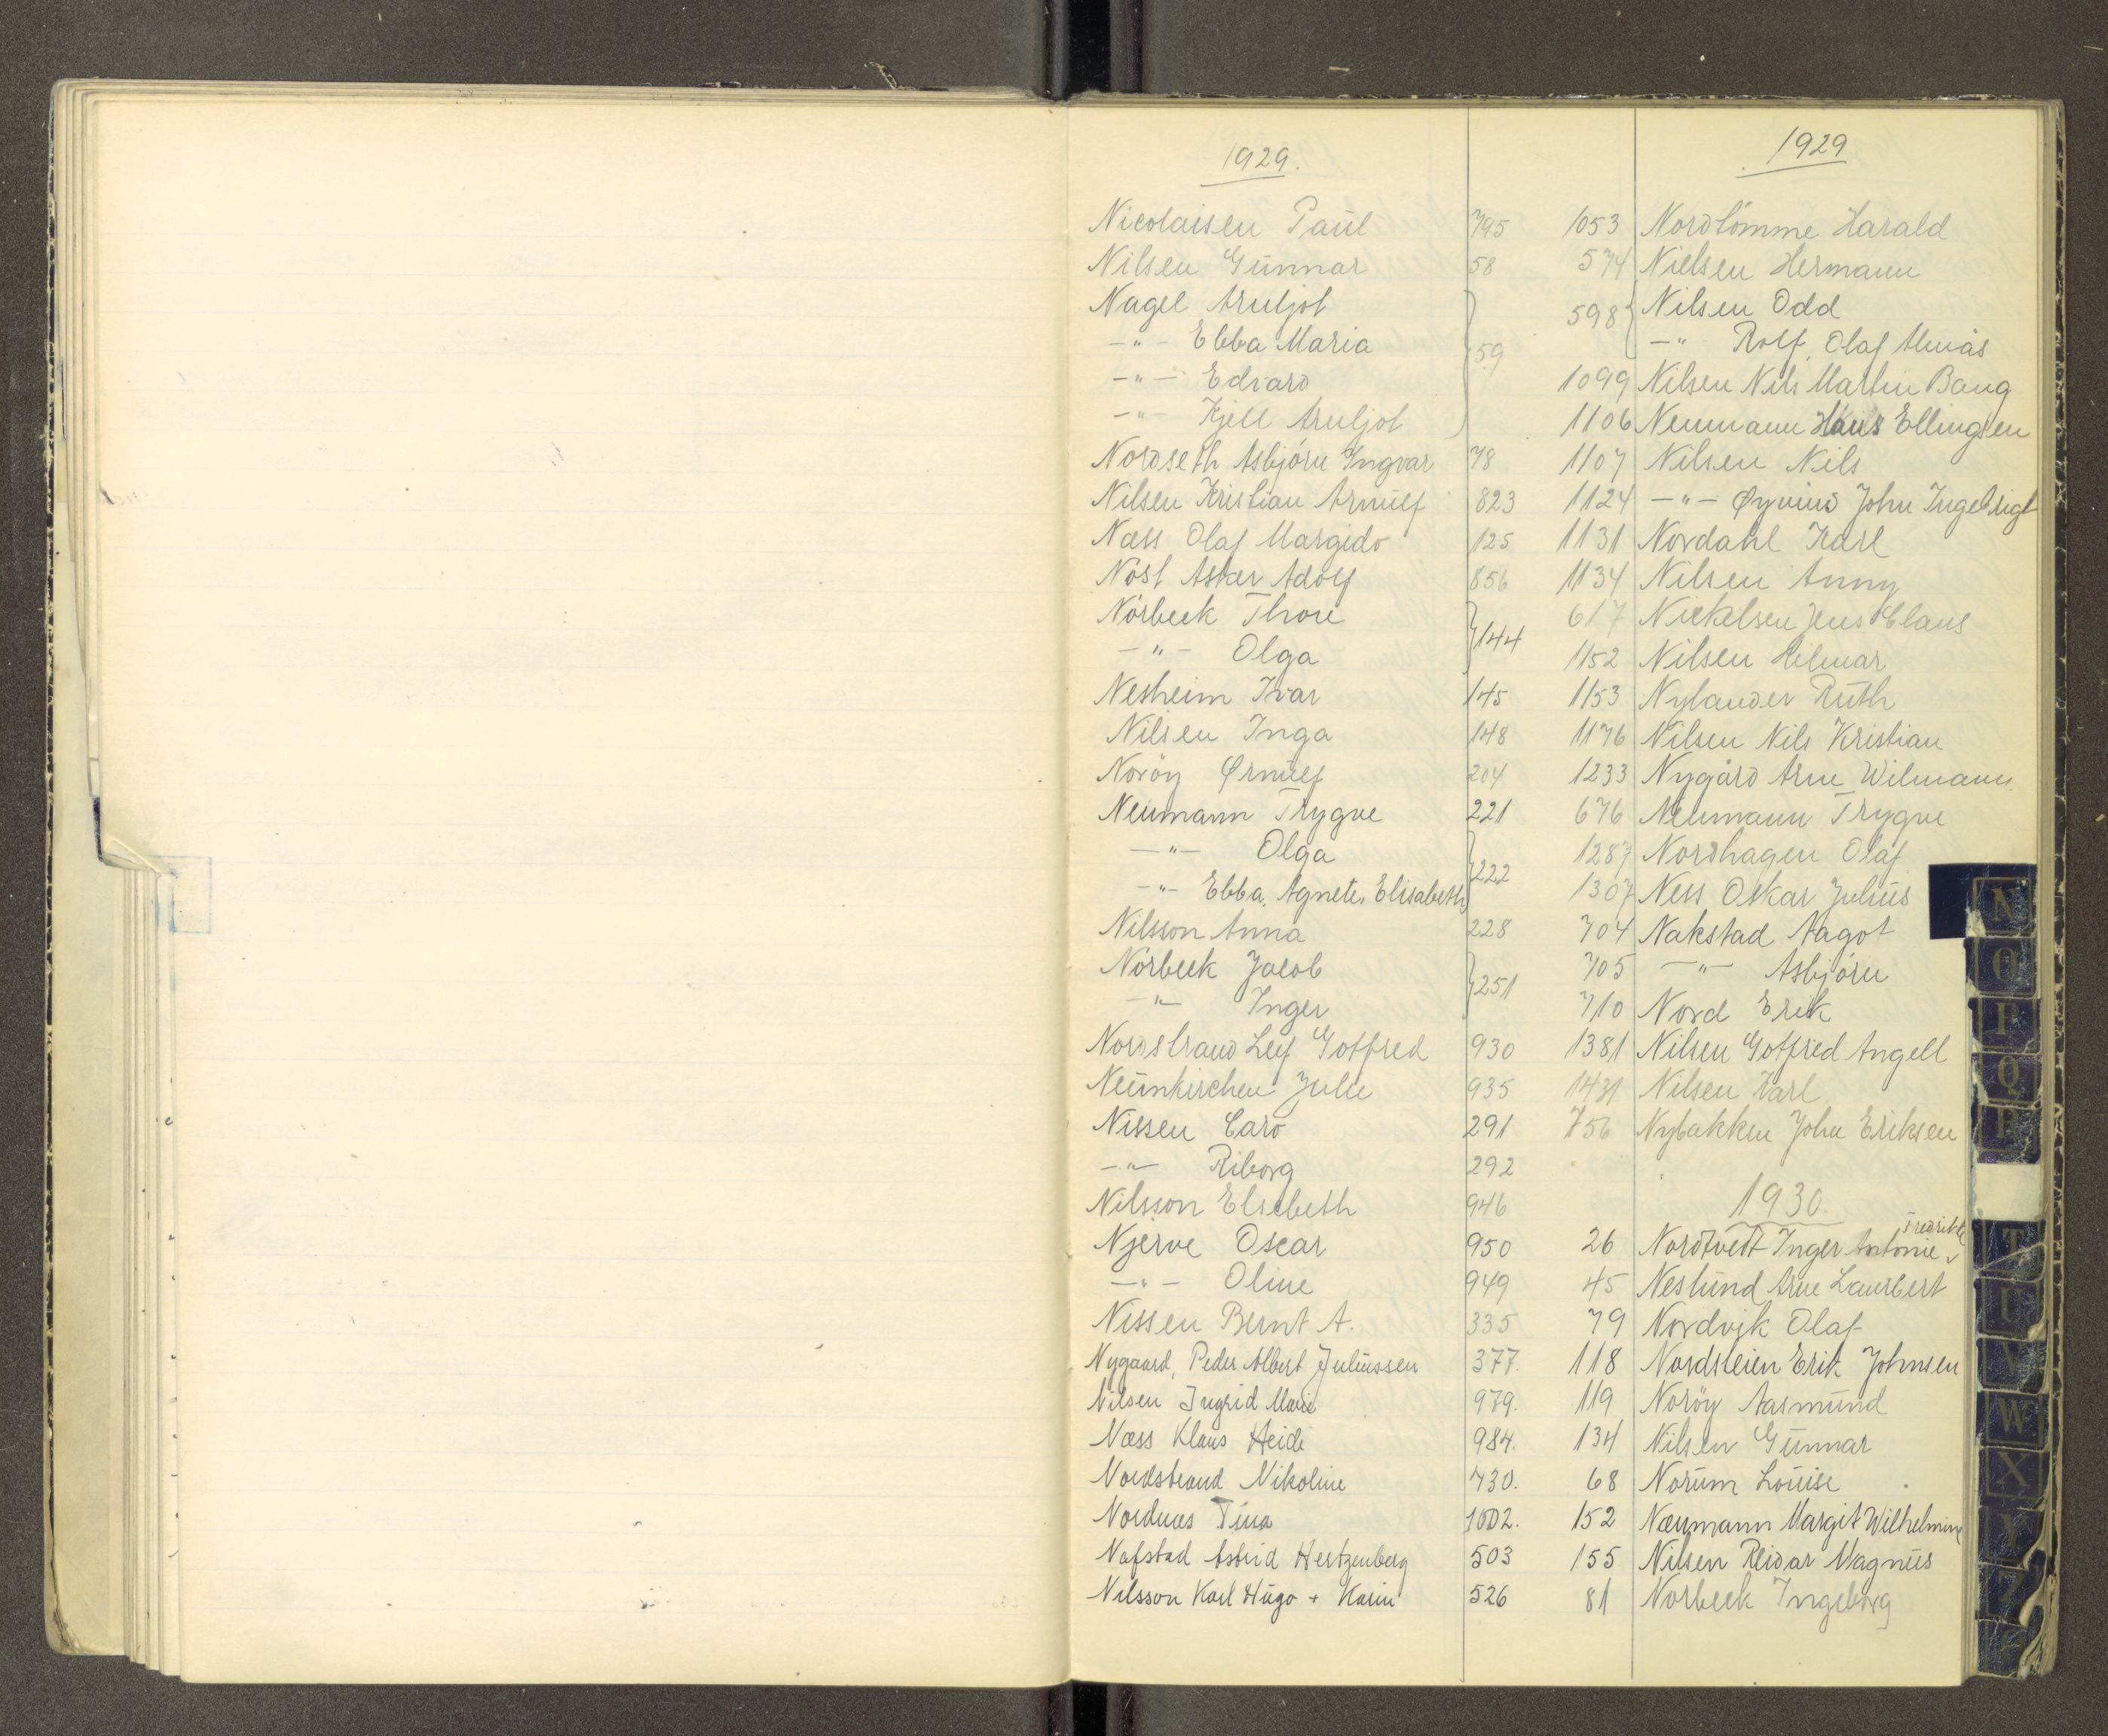 1929.
Nicolaisen Paul 795
Nilsen Gunnar 58
Nagel Arnljot
-"- Ebba Maria 59
-"- Edvard
-"- Kjell Arnljot
Nordseth Asbjörn Ingvar 78
Nilsen Kristian Arnulf 823
Næss Olaf Margido 125
Nöst Asker Adolf 856
Nörbeck Thore
-"- Olga 144
Nesheim Ivar 145
Nilsen Inga 148
Noröy Ørnulf 204
Neumann Trygve 221
-"- Olga 222
-"- Ebba Agnete Elisabeth
Nilsson Anna 228
Nörbeck Jacob
-"- Inger 251
Nordstrand Leif Gotfred 930
Neunkirchen Julie 935
Nissen Caro 291
-"- Riborg 292
Nilsson Elsebeth 946
Njerve Oscar 950
-"- Oline 949
Nissen Bernt A. 335
Nygaard, Peder Albert Juliussen 377.
Nilsen Ingrid Marie 979.
Næss Klaus Heide 984.
Nordstrand Nikoline 430.
Nordnes Tina 1002.
Nafstad Astrid Hertzenberg 503
Nilsson Karl Hugo + Karin 526
1929
1053 Nordlömme Harald
574 Nielsen Hermann
598 Nilsen Odd
-"- Rolf, Olaf Almås
1099 Nilsen Nils Martin Bang
1106 Neumann Hans Ellingsen
1107 Nilsen Nils
1124 -"- Øyvind John Ingebrigt
1131 Nordahl Karl
1134 Nilsen Anny
617 Nickelsen Jens Claus
1152 Nilsen Hilmar
1153 Nylander Ruth
1176 Nilsen Nils Kristian
1233 Nygård Arne Wilmann
676 Neumann Trygve
1287 Nordhagen Olaf
1307 Ness Oskar Julius
704 Nakstad Aagot
705 -"- Asbjörn
710 Nord Erik
1381 Nilsen Gotfred Angell
1431 Nilsen Karl
756 Nybakken John Eriksen
1930.
Fredrikke
26 Nordtvedt Inger Antonie
45 Neslund Arne Laurbert
79 Nordvik Olaf
118 Nordsleien Erik Johnsen
119 Noröy Aasmund
134 Nilsen Gunnar
68 Norum Louise
152 Næumann Margit Wilhelmine
155 Nilsen Reidar Magnus
81 Norbeck Ingeborg
N
O
P
Q
R
T
U
V
W
X
Y
Z